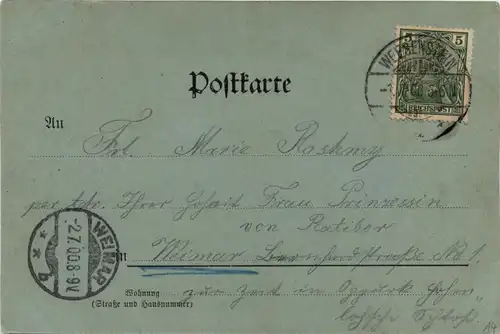 5 5
REICHSPOST
WEESENSTEIN
Postkarte
An
Frl. Marie
per Adr. Ihrer Hoheit Frau Prinzessin
von Ratibor
in Weimar Bernhardstraße No 1.
Wohnung
(Straße und Hausnummer)
zur Zeit in
WEIMAR
-2.7.00.8-9V.
b